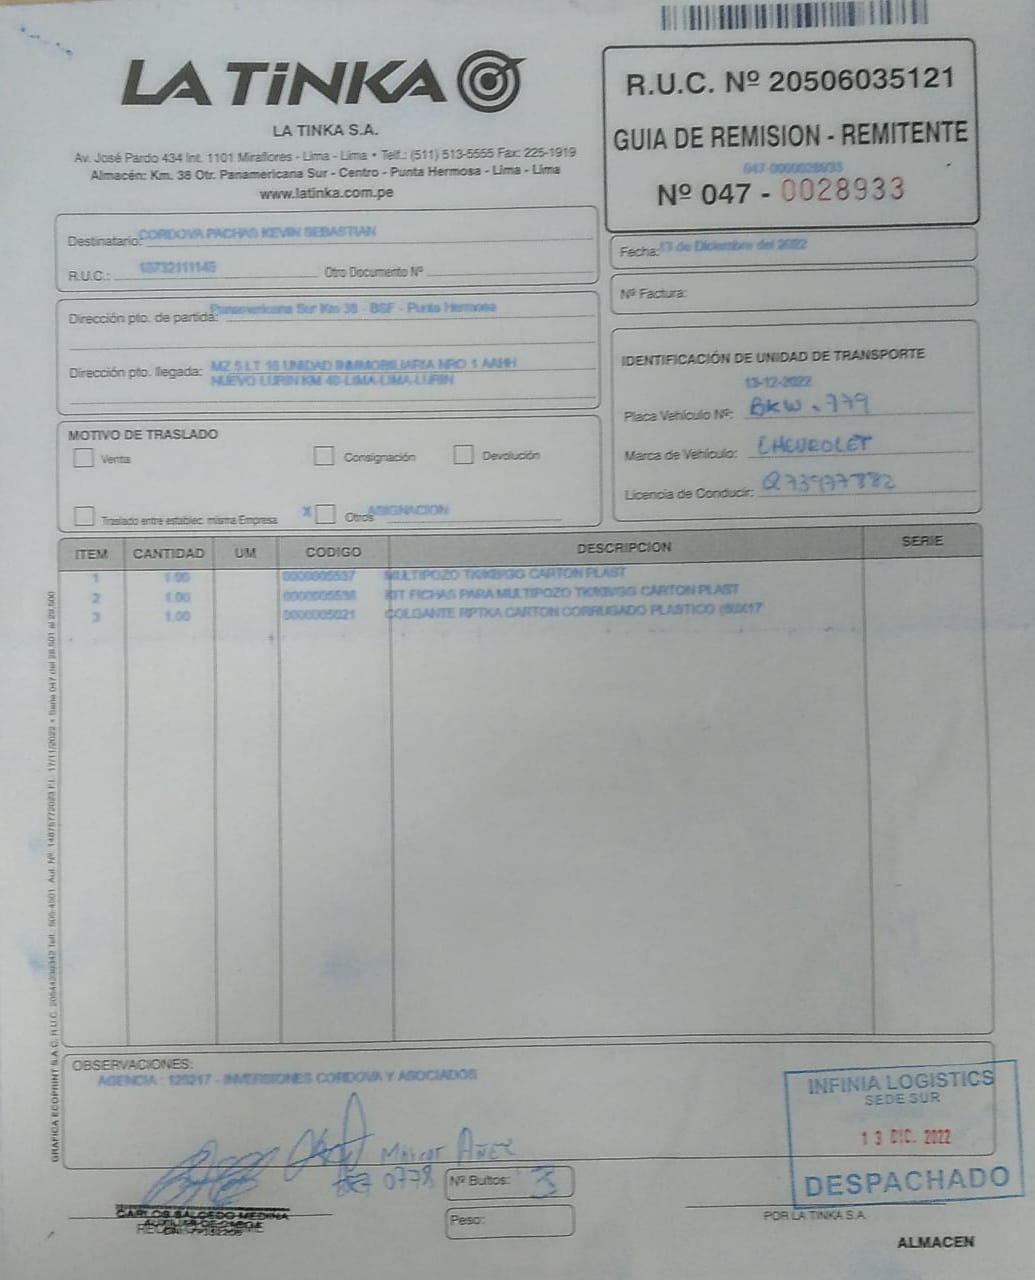 LA TiNKA
LA TINKA S.A.
Av. José Pardo 434 Int. 1101 Miraflores - Lima - Lima • Telf.: (511) 513-5555 Fax: 225-1919
Almacén: Km. 38 Otr. Panamericana Sur - Centro - Punta Hermosa - Lima - Lima
www.latinka.com.pe
R.U.C. Nº 20506035121
GUIA DE REMISION - REMITENTE
047-0000028933
Nº 047 - 0028933
Destinatario: CORDOVA PACHAS KEVIN SEBASTIAN
R.U.C.: 10732111145 Otro Documento Nº
Fecha: 13 de Diciembre del 2022
Nº Factura:
Dirección pto. de partida: Panamericana Sur Km 38 - BSF - Punta Hermosa
Dirección pto. llegada: MZ S LT 16 UNIDAD INMMOBILIARIA NRO 1 AAHH
NUEVO LURIN KM 40-LIMA-LIMA-LURIN
IDENTIFICACIÓN DE UNIDAD DE TRANSPORTE
13-12-2022
Placa Vehículo Nº: BKW-779
Marca de Vehículo: CHEVROLET
Licencia de Conducir: Q73977882
MOTIVO DE TRASLADO
Venta Consignación Devolución
Traslado entre establec. misma Empresa X Otros ASIGNACION
ITEM CANTIDAD UM CODIGO DESCRIPCION SERIE
1 1.00 0000005537 MULTIPOZO TK/KB/GG CARTON PLAST
2 1.00 0000005538 KIT FICHAS PARA MULTIPOZO TK/KB/GG CARTON PLAST
3 1.00 0000005021 COLGANTE RPTKA CARTON CORRUGADO PLASTICO (50X17
OBSERVACIONES:
AGENCIA : 125217 - INVERSIONES CORDOVA Y ASOCIADOS
INFINIA LOGISTICS
SEDE SUR
13 DIC. 2022
DESPACHADO
0778
Nº Bultos: 3
Peso:
CARLOS SALCEDO MEDINA
POR LA TINKA S.A.
ALMACEN